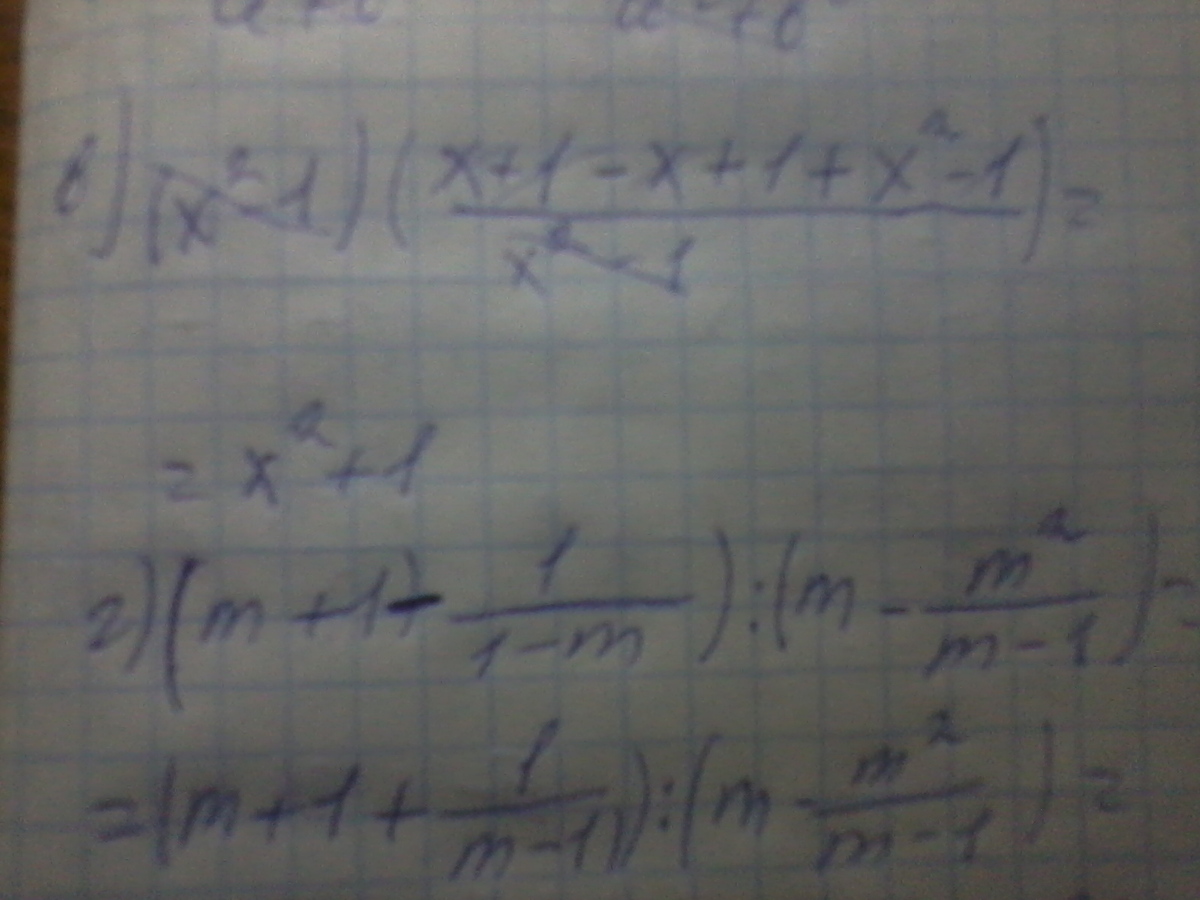 в) (x²-1)(\frac{x+1-x+1+x²-1}{x²-1})=
= x²+1
г) (m+1-\frac{1}{1-m}):(m-\frac{m²}{m-1})=
=(m+1+\frac{1}{m-1}):(m-\frac{m²}{m-1})=